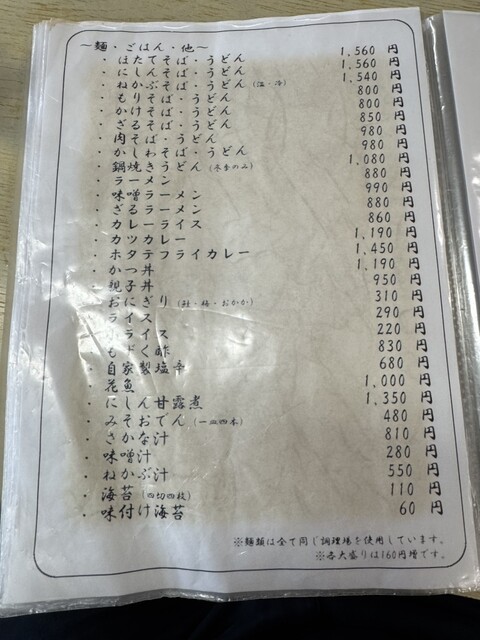 ～麺・ごはん・他～
・ほたてそば・うどん 1,560 円
・にしんそば・うどん 1,560 円
・ねかぶそば・うどん (温・冷) 1,540 円
・もりそば・うどん 800 円
・かけそば・うどん 800 円
・ざるそば・うどん 850 円
・肉そば・うどん 980 円
・かしわそば・うどん 980 円
・鍋焼きうどん (冬季のみ) 1,080 円
・ラーメン 880 円
・味噌ラーメン 990 円
・ざるラーメン 880 円
・カレーライス 860 円
・カツカレー 1,190 円
・ホタテフライカレー 1,450 円
・かつ丼 1,190 円
・親子丼 950 円
・おにぎり (鮭・梅・おかか) 310 円
・ライス 290 円
ライス 220 円
・もずく酢 830 円
・自家製塩辛 680 円
・花魚 1,000 円
・にしん甘露煮 1,350 円
・みそおでん (一皿四本) 480 円
・さかな汁 810 円
・味噌汁 280 円
・ねかぶ汁 550 円
・海苔 (四切四枚) 110 円
・味付け海苔 60 円
※麺類は全て同じ調理場を使用しています。
※各大盛りは160円増です。